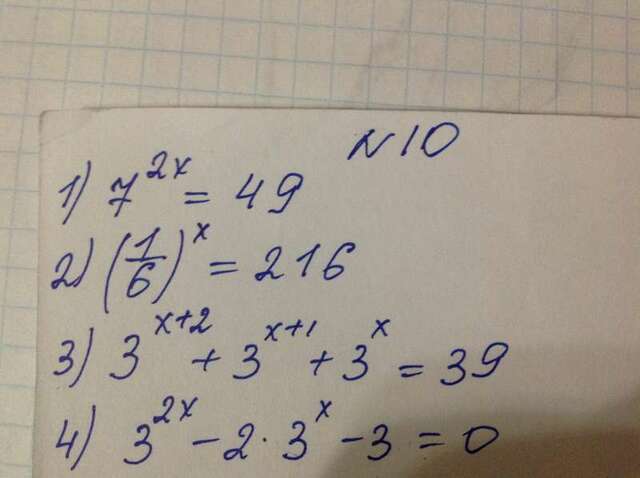 N10
1) 7^{2x} = 49
2) (1/6)^x = 216
3) 3^{x+2} + 3^{x+1} + 3^x = 39
4) 3^{2x} - 2 · 3^x - 3 = 0